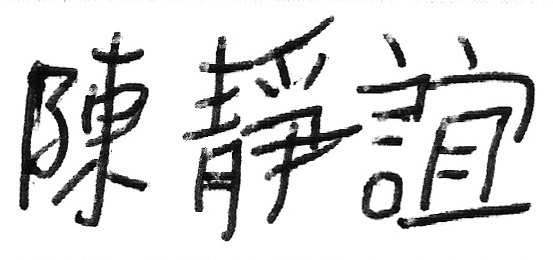 陳靜誼